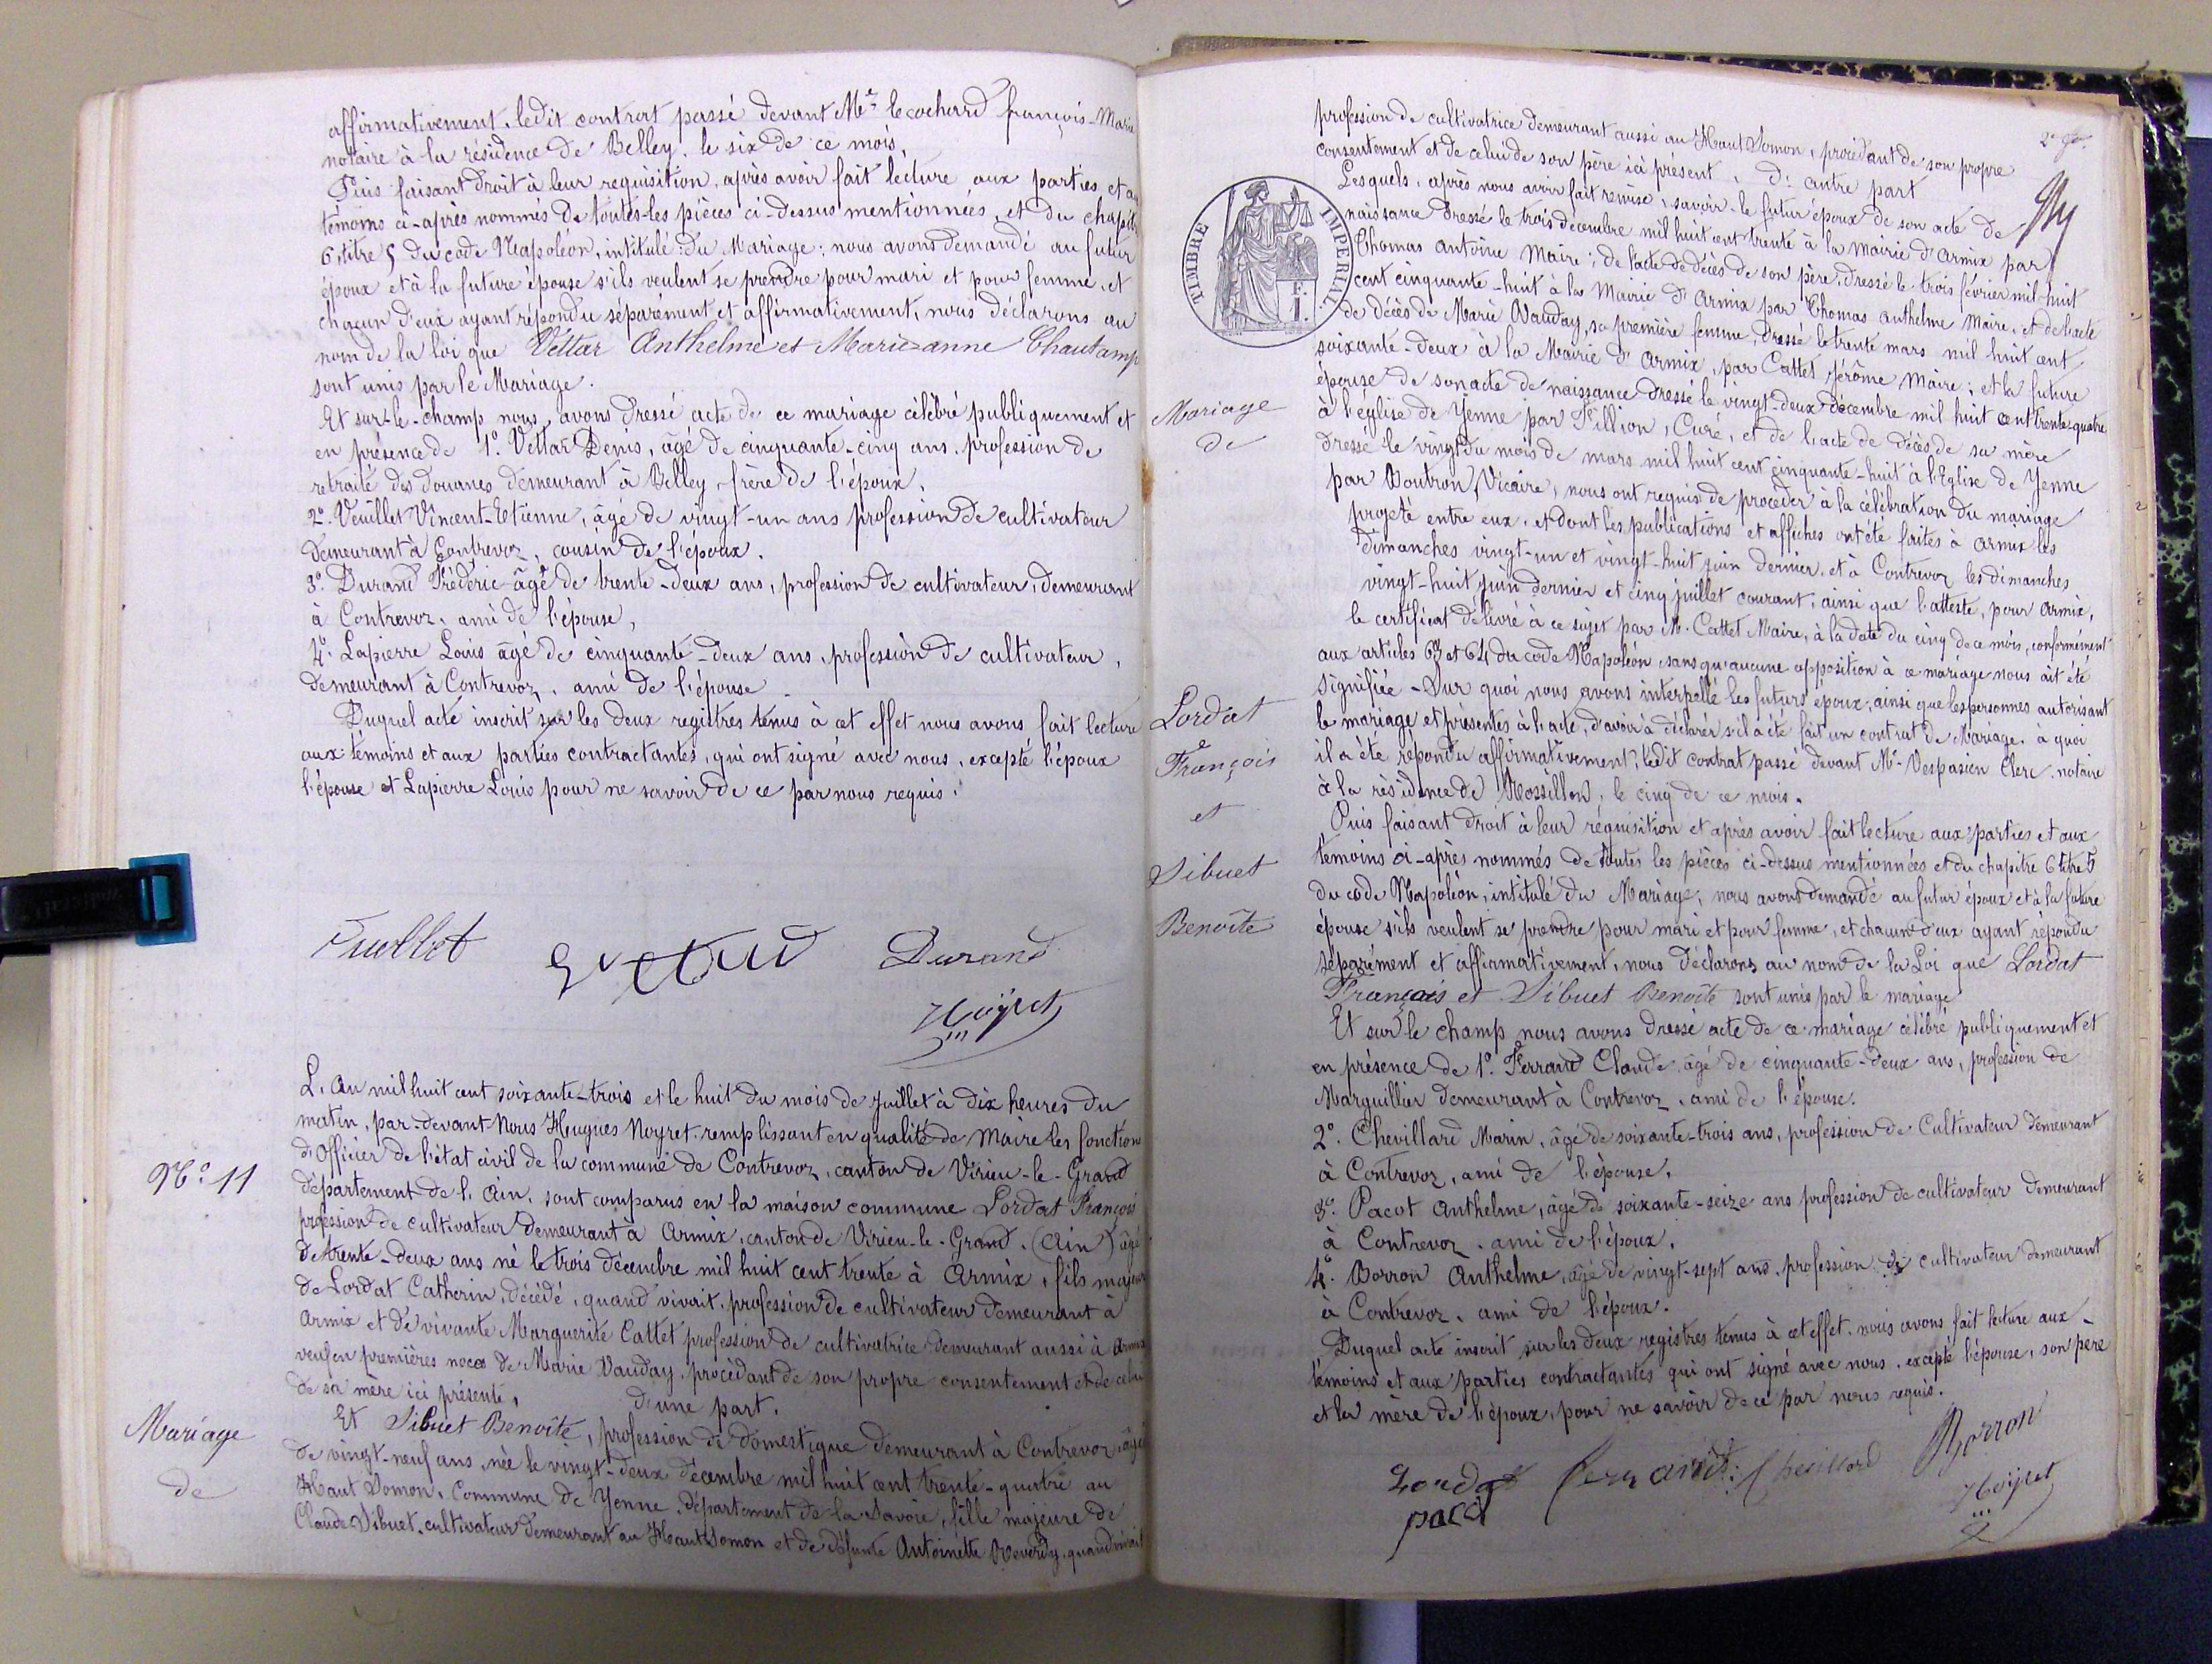 affirmativement, ledit contrat passé devant Me. Lecocherd françois-Marie
notaire à la résidence de Belley, le six de ce mois.
Puis faisant droit à leur requisition, après avoir fait lecture, aux parties et a
témoins ci-après nommés de toutes les pièces ci-dessus mentionnées, et du chapit
6, titre 5 du code Napoléon, intitulé: du Mariage; nous avons demandé au futur
époux et à la future épouse s'ils veulent se prendre pour mari et pour femme, et
chacun d'eux ayant répondu séparément et affirmativement, nous déclarons au
nom de la loi que Vettar Anthelme et Marie-anne Chautamp
sont unis par le Mariage.
Et sur-le-champ nous avons dressé acte de ce mariage célébré publiquement et
en présence de 1º. Vettar Denis, âgé de cinquante-cinq ans, profession de
retraité des douanes demeurant à Belley, frère de l'époux,
2º. Veuillet Vincent-Etienne, âgé de vingt-un ans profession de cultivateur
demeurant à Contrevoz, cousin de l'époux.
3º. Durand Frédéric âgé de trente-deux ans, profession de cultivateur, demeurant
à Contrevoz, ami de l'épouse,
4º. Lapierre Louis âgé de cinquante-deux ans, profession de cultivateur,
demeurant à Contrevoz, ami de l'épouse
Duquel acte inscrit sur les deux registres tenus à cet effet nous avons fait lecture
aux témoins et aux parties contractantes, qui ont signé avec nous, excepté l'époux
l'épouse et Lapierre Louis pour ne savoir de ce par nous requis.
Durand
Noyret
Nº. 11
L'an mil huit cent soixante-trois et le huit du mois de Juillet à dix heures du
matin, par-devant Nous Hugues Noyret remplissant en qualité de Maire les fonction
d'Officier de l'état civil de la commune de Contrevoz, canton de Virieu-le-Grand
département de l'Ain, sont comparus en la maison commune Lordat François
profession de cultivateur demeurant à Armix, canton de Virieu-le-Grand. (Ain) âgé
de trente-deux ans né le trois décembre mil huit cent trente à Armix, fils majeur
de Lordat Catherin, décédé, quand vivait, profession de cultivateur demeurant à
Armix et de vivante Marguerite Cattet profession de cultivatrice demeurant aussi à Armix
veuf en premières noces de Marie Vauday, procédant de son propre consentement et de celui
de sa mère ici présente, d'une part.
Mariage
de
Et Sibuet Benoîte, profession de domestique demeurant à Contrevoz, âgée
de vingt-neuf ans, née le vingt-deux décembre mil huit cent trente-quatre au
Haut Somon, Commune de Yenne, département de la Savoie, fille majeure de
Claude Sibuet, cultivateur demeurant au Haut Somon et de défunte Antoinette Reverdy, quand vivait
profession de cultivatrice demeurant aussi au Haut Somon, procédant de son propre
consentement et de celui de son père ici présent, d'autre part
Lesquels, après nous avoir fait remise, savoir: le futur époux de son acte de
naissance dressé le trois décembre mil huit cent trente à la Mairie d'Armix par
Thomas Antoine Maire; de l'acte de décès de son père, dressé le trois février mil huit
cent cinquante-huit à la Mairie d'Armix par Thomas Anthelme Maire, et de l'acte
de décès de Marie Vauday, sa première femme, dressé le trente mars mil huit cent
soixante-deux à la Mairie d'Armix, par Cattet Jérôme Maire; et la future
épouse de son acte de naissance dressé le vingt-deux décembre mil huit cent trente-quatre
à l'église de Yenne par Fillion, Curé, et de l'acte de décès de sa mère
dressé le vingt du mois de mars mil huit cent cinquante-huit à l'Eglise de Yenne
par Voutron, Vicaire, nous ont requis de procéder à la célébration du mariage
projeté entre eux, et dont les publications et affiches ont été faites à Armix les
dimanches vingt-un et vingt-huit juin dernier, et à Contrevoz les dimanches
vingt-huit juin dernier et cinq juillet courant, ainsi que l'atteste, pour Armix,
le certificat délivré à ce sujet par M. Cattet Maire, à la date du cinq de ce mois, conformément
aux articles 63 et 64 du code Napoléon, sans qu'aucune opposition à ce mariage nous ait été
signifiée - Sur quoi nous avons interpellé les futurs époux, ainsi que les personnes autorisant
le mariage et présentes à l'acte, d'avoir à déclarer s'il a été fait un contrat de Mariage, à quoi
il a été répondu affirmativement, ledit contrat passé devant Me. Vespasien Clerc, notaire
à la résidence de Rossillon, le cinq de ce mois.
Puis faisant droit à leur réquisition et après avoir fait lecture aux parties et aux
témoins ci-après nommés de toutes les pièces ci-dessus mentionnées et du chapitre 6 titre 5
du code Napoléon, intitulé du Mariage; nous avons demandé au futur époux et à la future
épouse s'ils veulent se prendre pour mari et pour femme, et chacun d'eux ayant répondu
séparément et affirmativement, nous déclarons au nom de la Loi que Lordat
François et Sibuet Benoîte sont unis par le mariage
Et sur le champ nous avons dressé acte de ce mariage célébré publiquement et
en présence de 1º. Ferrand Claude, âgé de cinquante-deux ans, profession de
Marguillier demeurant à Contrevoz, ami de l'épouse.
2º. Chevillard Marin, âgé de soixante-trois ans, profession de Cultivateur demeurant
à Contrevoz, ami de l'épouse.
3º. Pacot Anthelme, âgé de soixante-seize ans profession de cultivateur demeurant
à Contrevoz, ami de l'époux.
4º. Borron Anthelme, âgé de vingt-sept ans, profession de cultivateur demeurant
à Contrevoz, ami de l'époux.
Duquel acte inscrit sur les deux registres tenus à cet effet, nous avons fait lecture aux
témoins et aux parties contractantes qui ont signé avec nous, excepté l'épouse, son père
et la mère de l'époux, pour ne savoir de ce par nous requis.
Borron
Noyret
TIMBRE IMPERIAL
1 F.
Mariage
de
Lordat
François
et
Sibuet
Benoîte